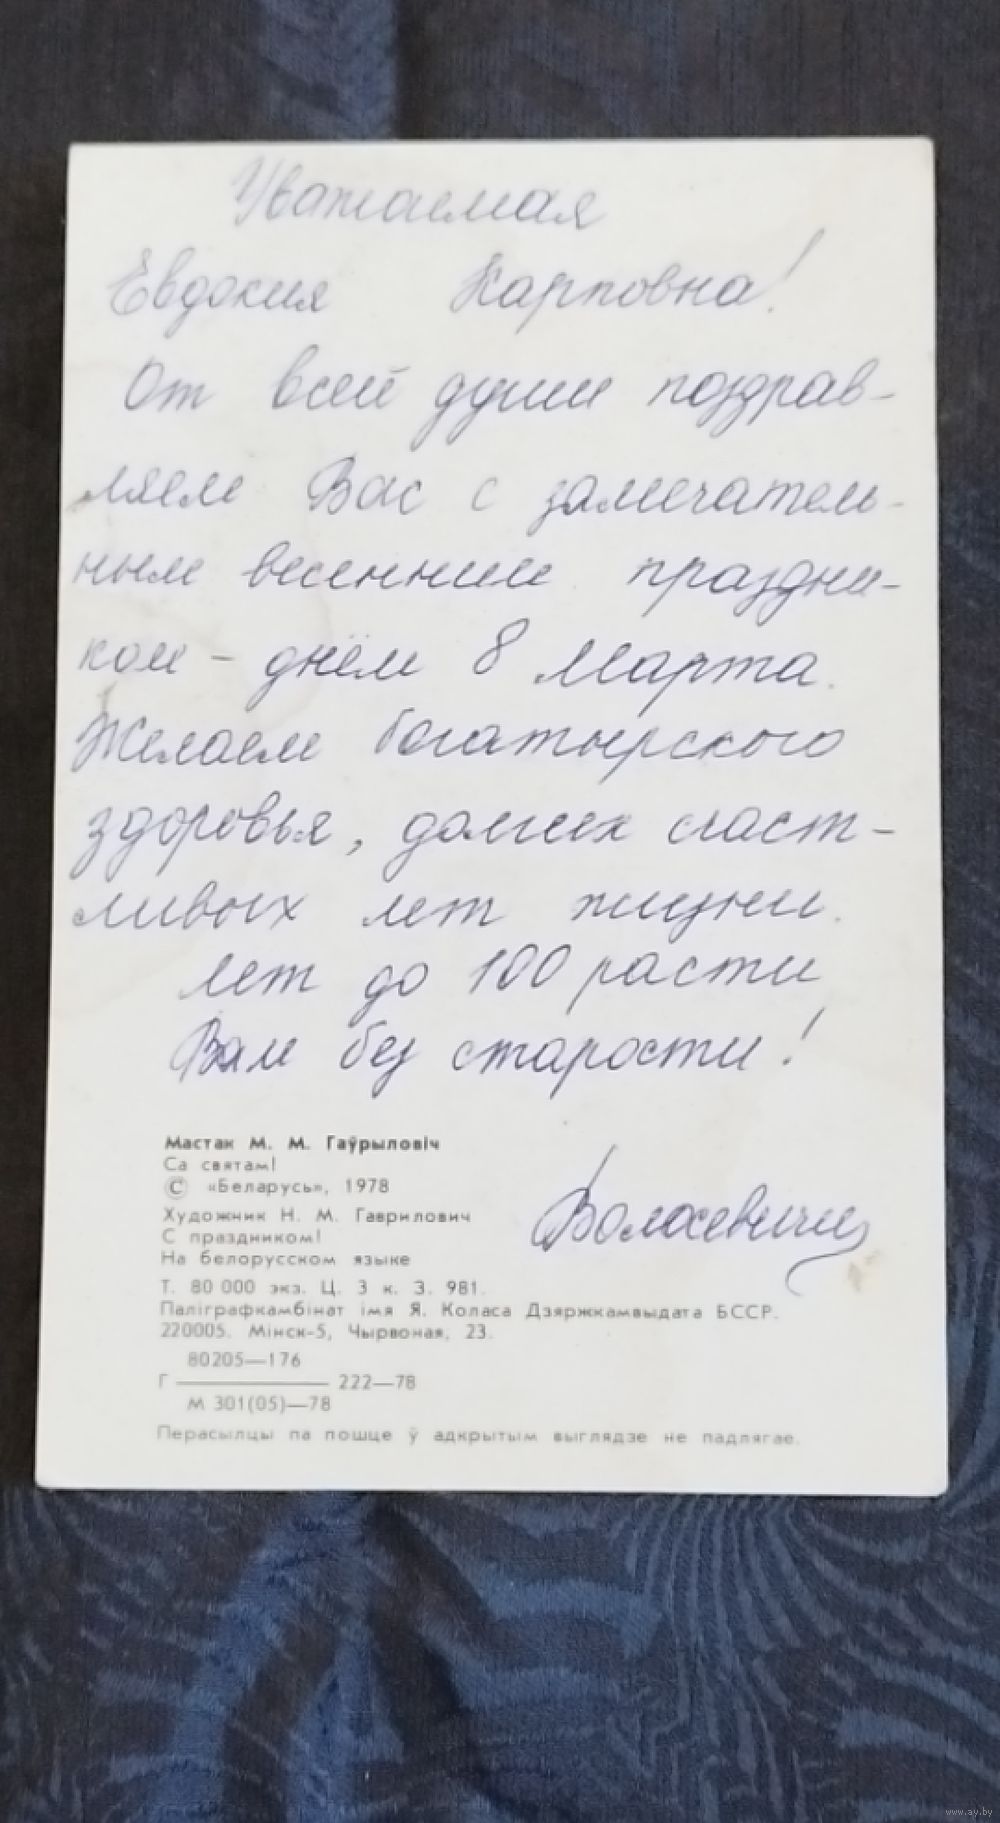 Уважаемая
Евдокия Карповна!
От всей души поздрав-
ляем Вас с замечатель-
ным весенним праздни-
ком - днём 8 Марта.
Желаем богатырского
здоровья, долгих счаст-
ливых лет жизни.
Лет до 100 расти
Вам без старости!
Волосевичи
Мастак М. М. Гаўрыловіч
Са святам!
© «Беларусь», 1978
Художник Н. М. Гаврилович
С праздником!
На белорусском языке
Т. 80 000 экз. Ц. 3 к. З. 981.
Паліграфкамбінат імя Я. Коласа Дзяржкамвыдата БССР.
220005. Мінск-5, Чырвоная, 23.
80205—176
Г ——— 222—78
М 301(05)—78
Перасылцы па пошце ў адкрытым выглядзе не падлягае.
www.ay.by